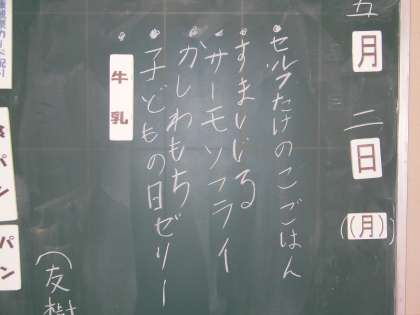 五月二日(月)
セルフたけのこごはん
すましじる
サーモンフライ
かしわもち
子どもの日ゼリー
牛乳
パン
パン
(友樹